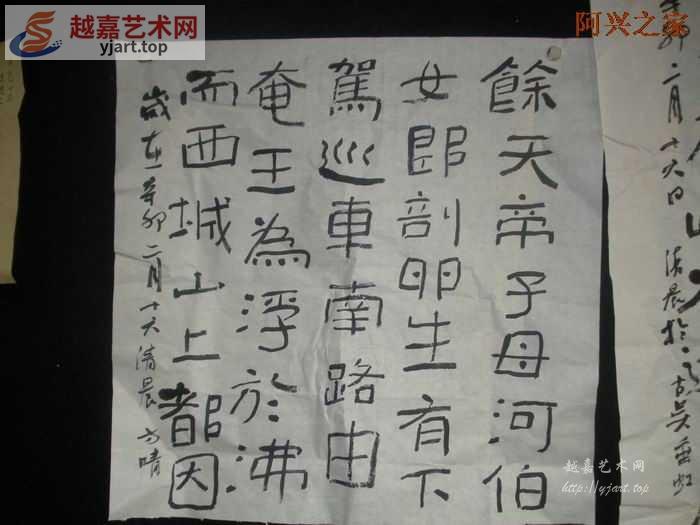 越嘉艺术网
yjart.top
阿兴之家
餘天帝子母河伯
女郎剖卵生有下
駕巡車南路由
奄王為浮於沸
而西城山上都因
歲在辛卯二月十六清晨方晴
辛卯二月十六日
清晨於
垂虹
越嘉艺术网
http://yjart.top